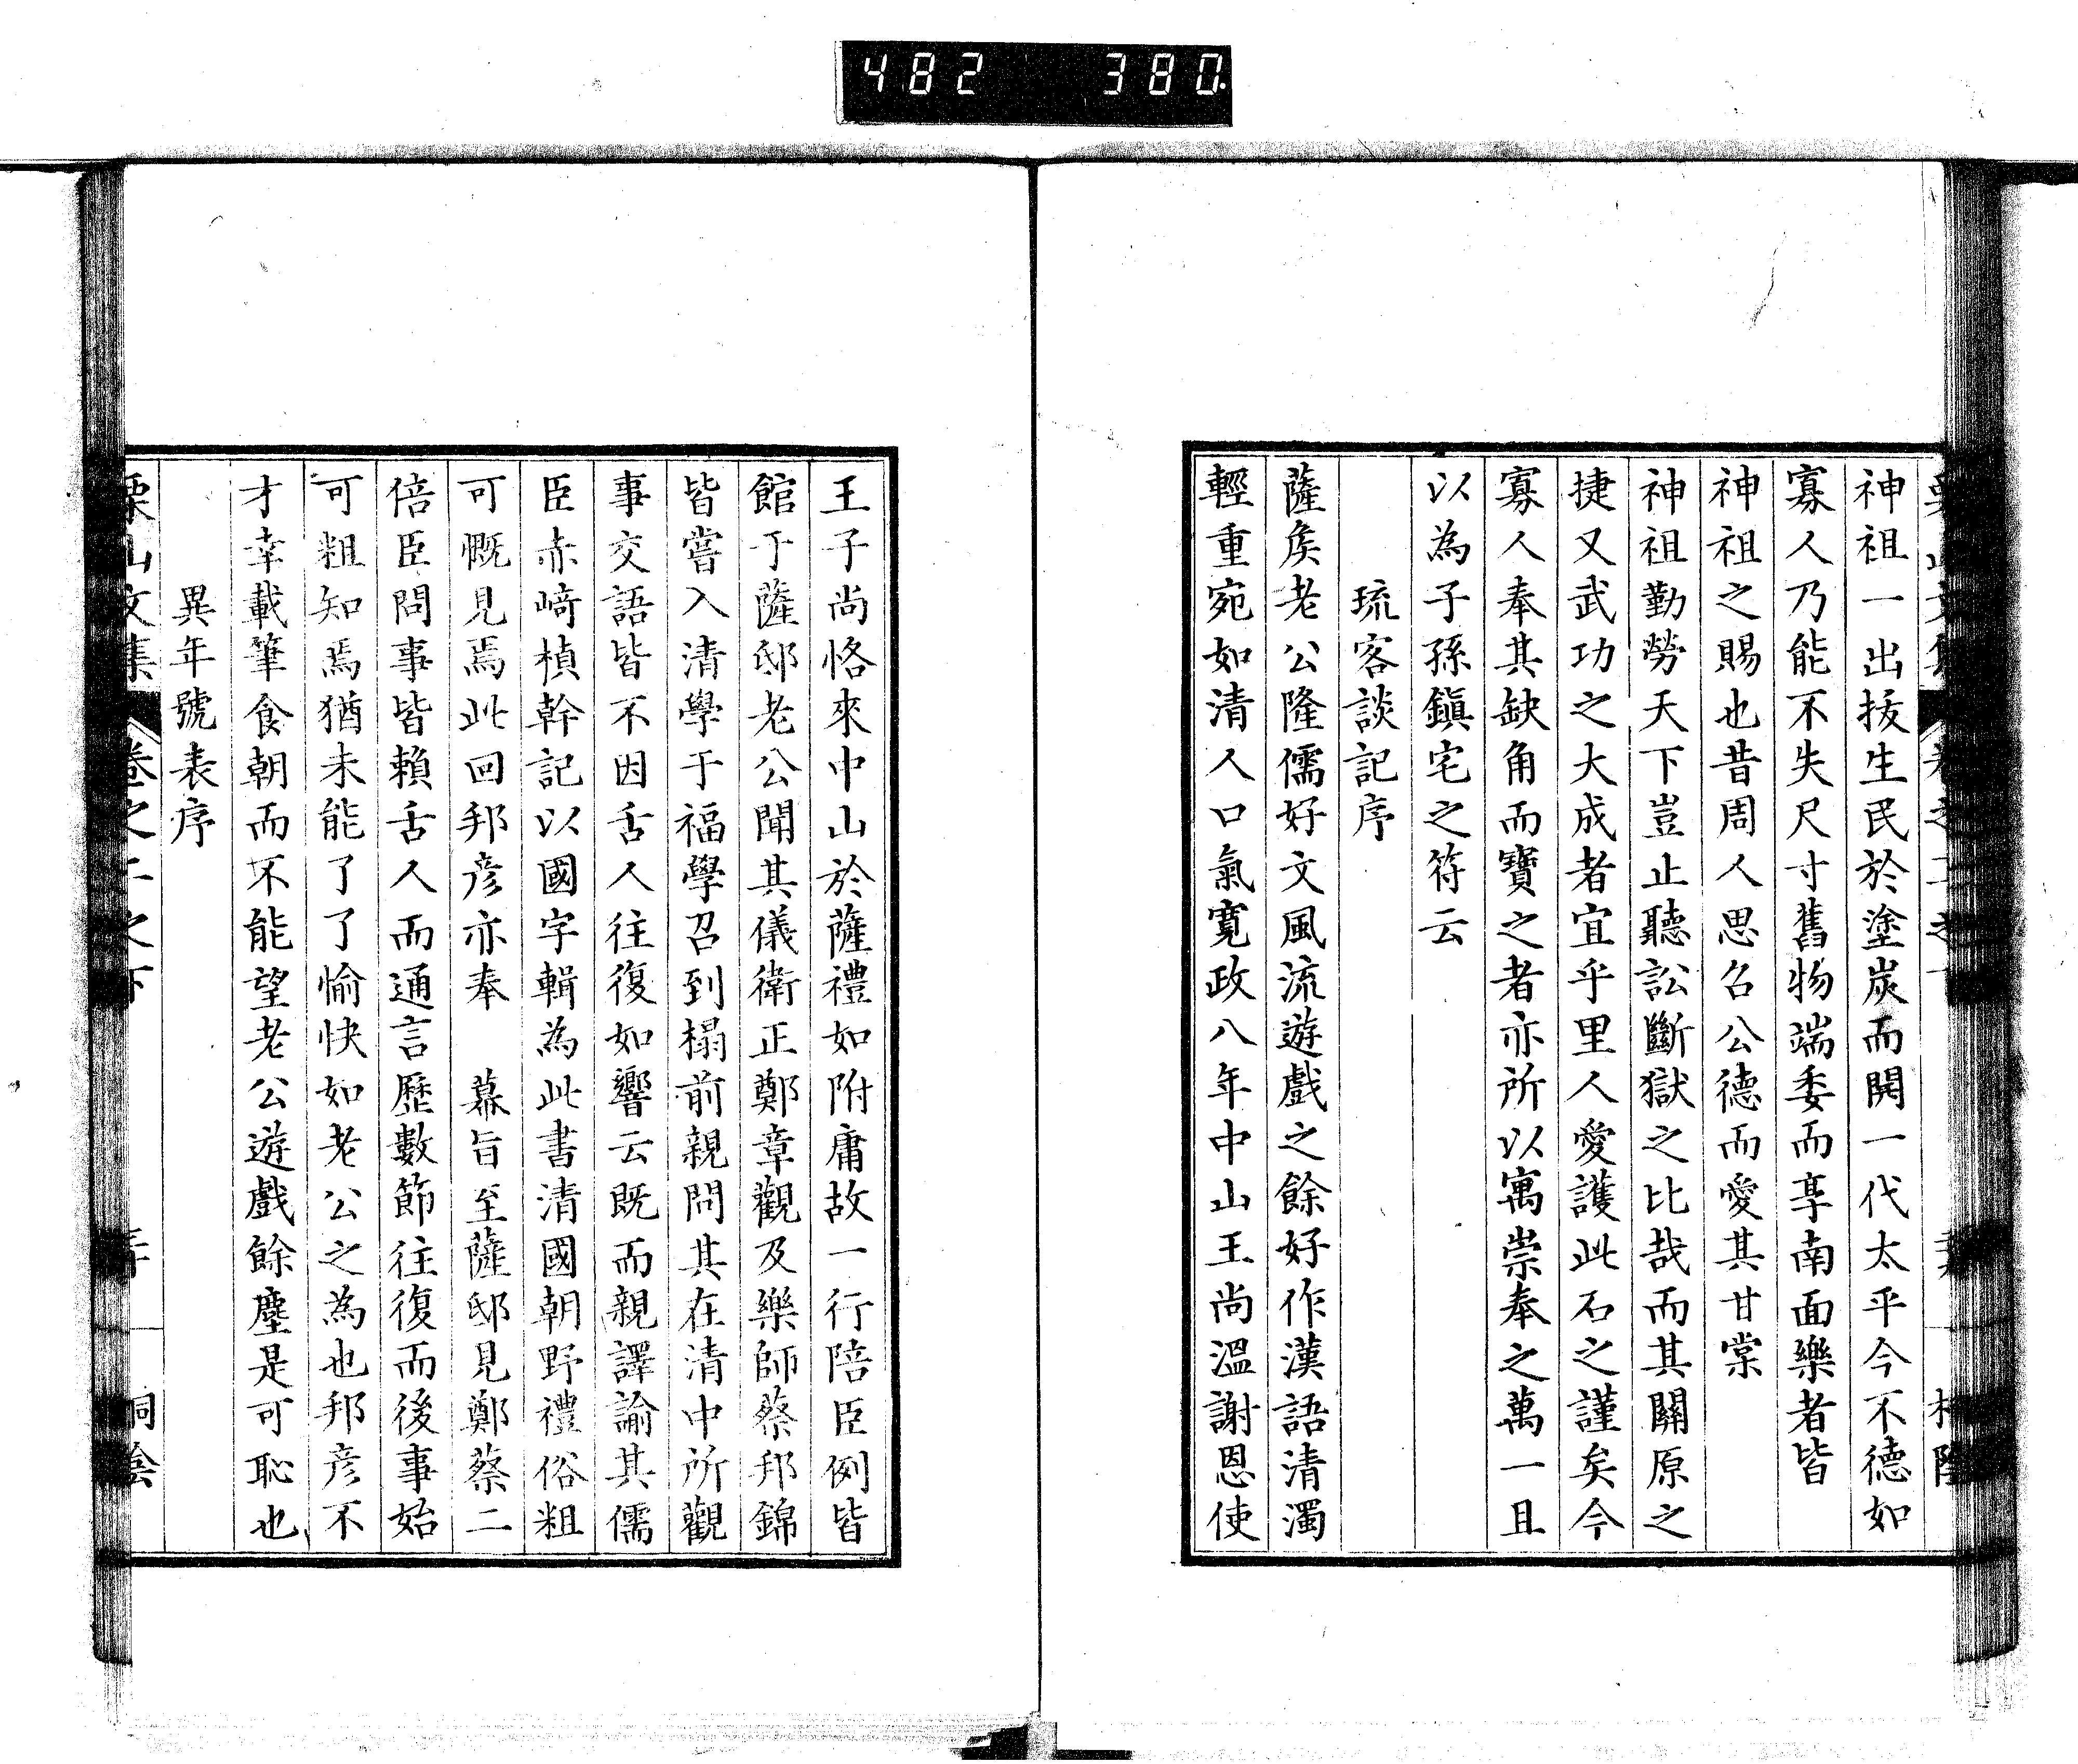 482 380
神祖一出拔生民於塗炭而開一代太平今不德如
寡人乃能不失尺寸舊物端委而享南面樂者皆
神祖之賜也昔周人思召公德而愛其甘棠
神祖勤勞天下豈止聽訟斷獄之比哉而其關原之
捷又武功之大成者宜乎里人愛護此石之謹矣今
寡人奉其缺角而寶之者亦所以寓崇奉之萬一且
以為子孫鎭宅之符云
琉客談記序
薩矦老公隆儒好文風流遊戲之餘好作漢語清濁
輕重宛如清人口氣寬政八年中山王尚溫謝恩使
王子尚恪來中山於薩禮如附庸故一行陪臣例皆
館于薩邸老公聞其儀衛正鄭章觀及樂師蔡邦錦
皆嘗入清學于福學召到榻前親問其在清中所觀
事交語皆不因舌人往復如響云既而親譯諭其儒
臣赤﨑楨幹記以國字輯為此書清國朝野禮俗粗
可慨見焉此回邦彦亦奉 幕旨至薩邸見鄭蔡二
倍臣問事皆賴舌人而通言歷數節往復而後事始
可粗知焉猶未能了了愉快如老公之為也邦彦不
才幸載筆食朝而不能望老公遊戲餘塵是可恥也
異年號表序
栗山文集 卷之二之下